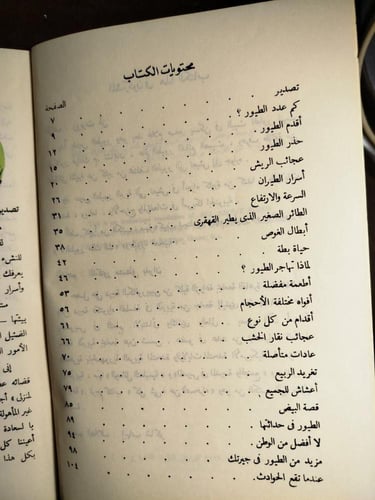 محتويات الكتاب
الصفحة
تصدير . . . . . ٧
كم عدد الطيور ؟ . . . . . ٩
أقدم الطيور . . . . . ١٢
حذر الطيور . . . . . ١٥
عجائب الريش . . . . . ٢٠
أسرار الطيران . . . . . ٢٦
السرعة والارتفاع . . . . . ٣١
الطائر الصغير الذى يطير القهقرى . . . . . ٣٥
أبطال الغوص . . . . . ٣٨
حياة بطة . . . . . ٤٢
لماذا تهاجر الطيور ؟ . . . . . ٤٦
أطعمة مفضلة . . . . . ٥٣
أفواه مختلفة الأحجام . . . . . ٥٦
أقدام من كل نوع . . . . . ٦١
عجائب نقار الخشب . . . . . ٦٦
عادات متأصلة . . . . . ٧٠
تغريد الربيع . . . . . ٧٥
أعشاش للجميع . . . . . ٧٩
قصة البيض . . . . . ٨٥
الطيور فى حداثتها . . . . . ٨٩
لا أفضل من الوطن . . . . . ٩٤
مزيد من الطيور فى جيرتك . . . . . ٩٨
عندما تقع الحوادث . . . . . ١٠٤
تصدير
للنشء
يعرفك
وأسرار
بيتها —
الأمور
فى
قضائه
غير المأهولة
أعيننا كل
بكل هذا